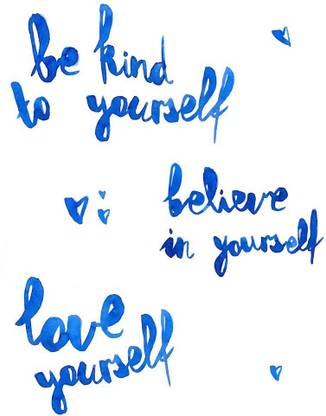 be kind
to yourself
believe
in yourself
love
yourself